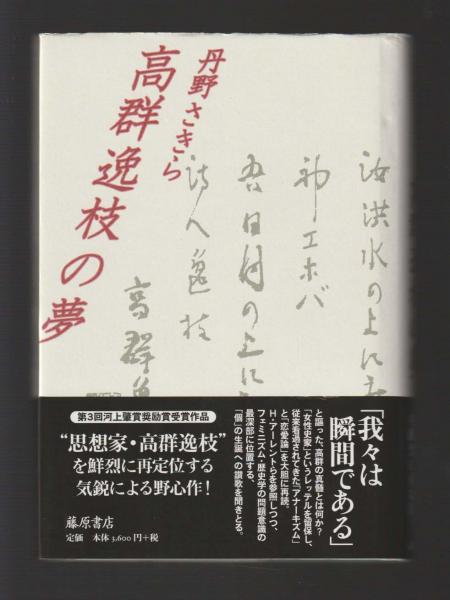 丹野さきら
高群逸枝の夢
汝洪水の上に
神エホバ
吾日月の上に
詩人逸枝
高群逸
「我々は
瞬間である」
と謳った、高群の真髄とは何か?
「女性史家」というレッテルを留保し、
従来看過されてきた「アナーキズム」
と「恋愛論」を大胆に再読。
H・アーレントらを参照しつつ、
フェミニズム・歴史学の問題意識の
最深部に位置する、
「個」の生誕への讃歌を聞きとる。
第3回河上肇賞奨励賞受賞作品
“思想家・高群逸枝”
を鮮烈に再定位する
気鋭による野心作!
藤原書店
定価 本体3,600円+税